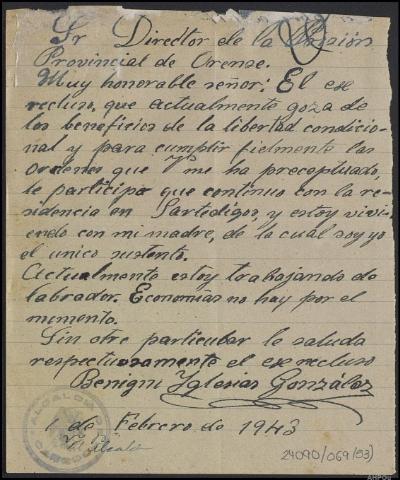 Sr Director de la Prisión
Provincial de Orense.
Muy honorable señor: El ex
recluso, que actualmente goza de
los beneficios de la libertad condicio
nal y para cumplir fielmente las
ordenes que Vd me ha preceptuado,
le participo que continuo con la re-
sidencia en Sartedigos, y estoy vivi-
endo con mi madre, de la cual soy yo
el unico sustento.
Actualmente estoy trabajando de
labrador. Economias no hay por el
momento.
Sin otro particular le saluda
respectuosamente el ex recluso
Benigni Yglesias González
1 de Febrero de 1943
El Alcalde
ALCALDIA DE
24090/069/03)
AHPOu